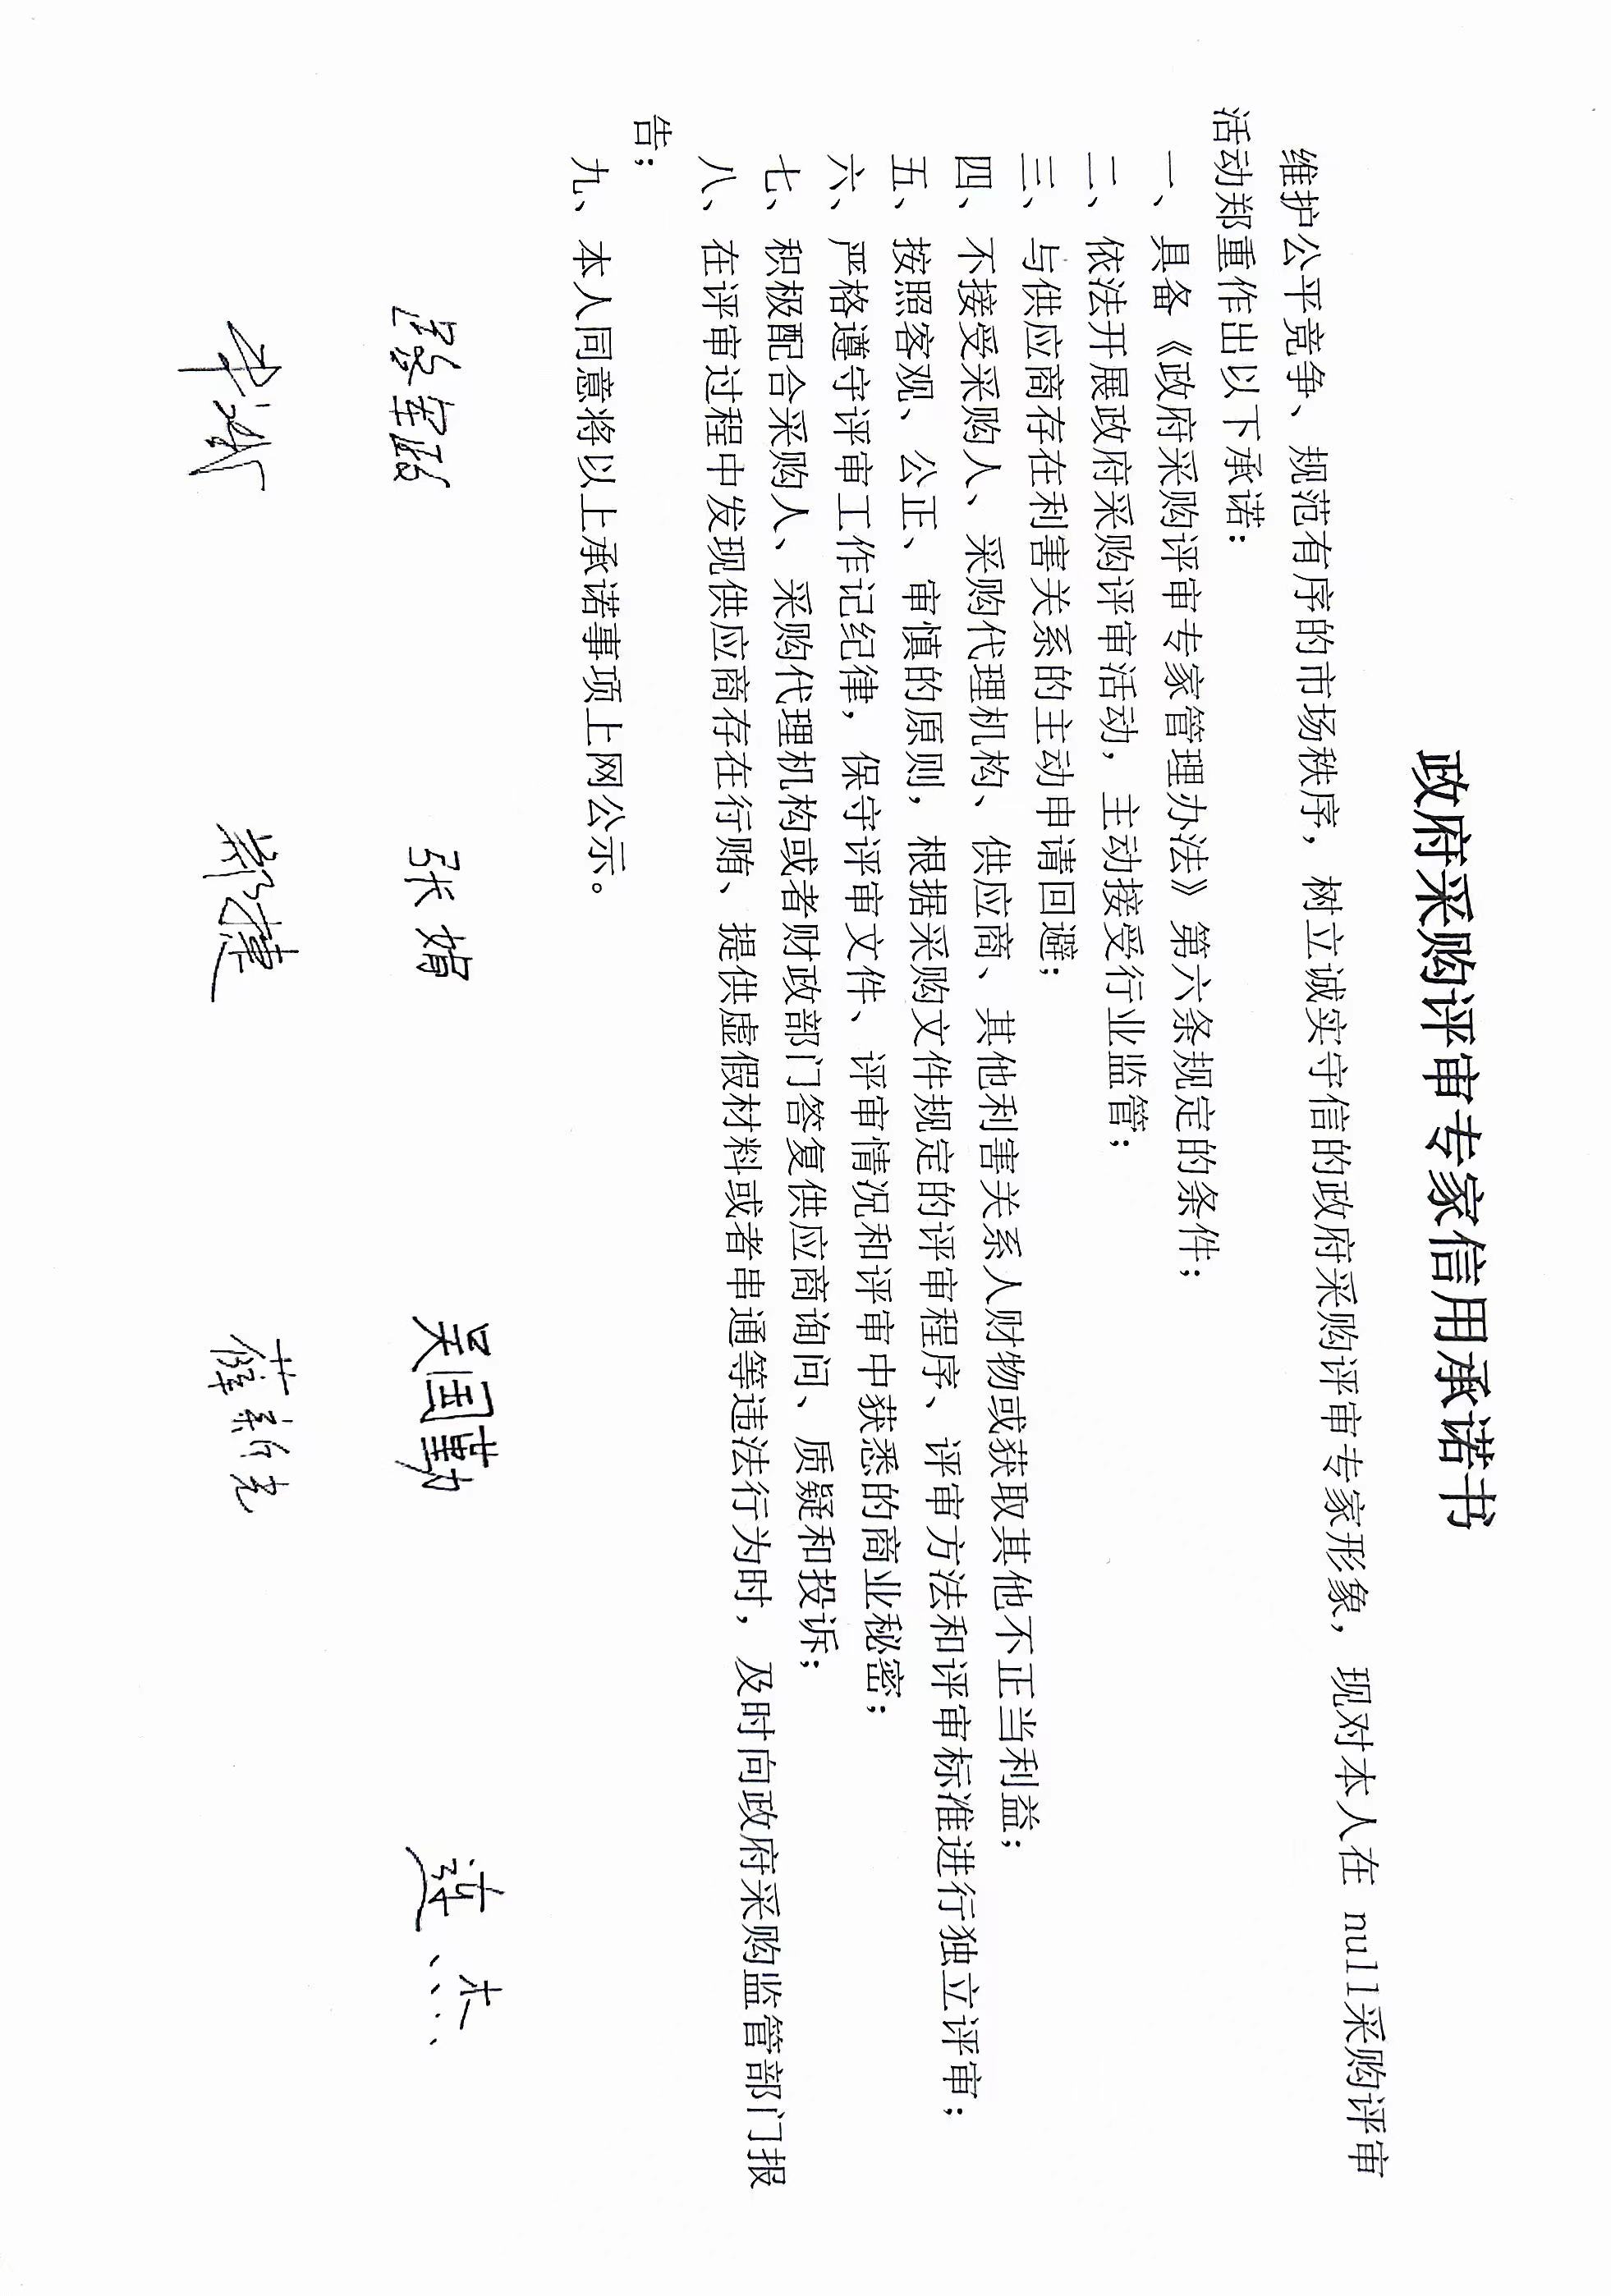 政府采购评审专家信用承诺书
维护公平竞争、规范有序的市场秩序，树立诚实守信的政府采购评审专家形象，现对本人在 null采购评审
活动郑重作出以下承诺：
一、具备《政府采购评审专家管理办法》第六条规定的条件；
二、依法开展政府采购评审活动，主动接受行业监管；
三、与供应商存在利害关系的主动申请回避；
四、不接受采购人、采购代理机构、供应商、其他利害关系人财物或获取其他不正当利益；
五、按照客观、公正、审慎的原则，根据采购文件规定的评审程序、评审方法和评审标准进行独立评审；
六、严格遵守评审工作记纪律，保守评审文件、评审情况和评审中获悉的商业秘密；
七、积极配合采购人、采购代理机构或者财政部门答复供应商询问、质疑和投诉；
八、在评审过程中发现供应商存在行贿、提供虚假材料或者串通等违法行为时，及时向政府采购监管部门报
告；
九、本人同意将以上承诺事项上网公示。
张娟 吴国勤
郑建 薛新亮